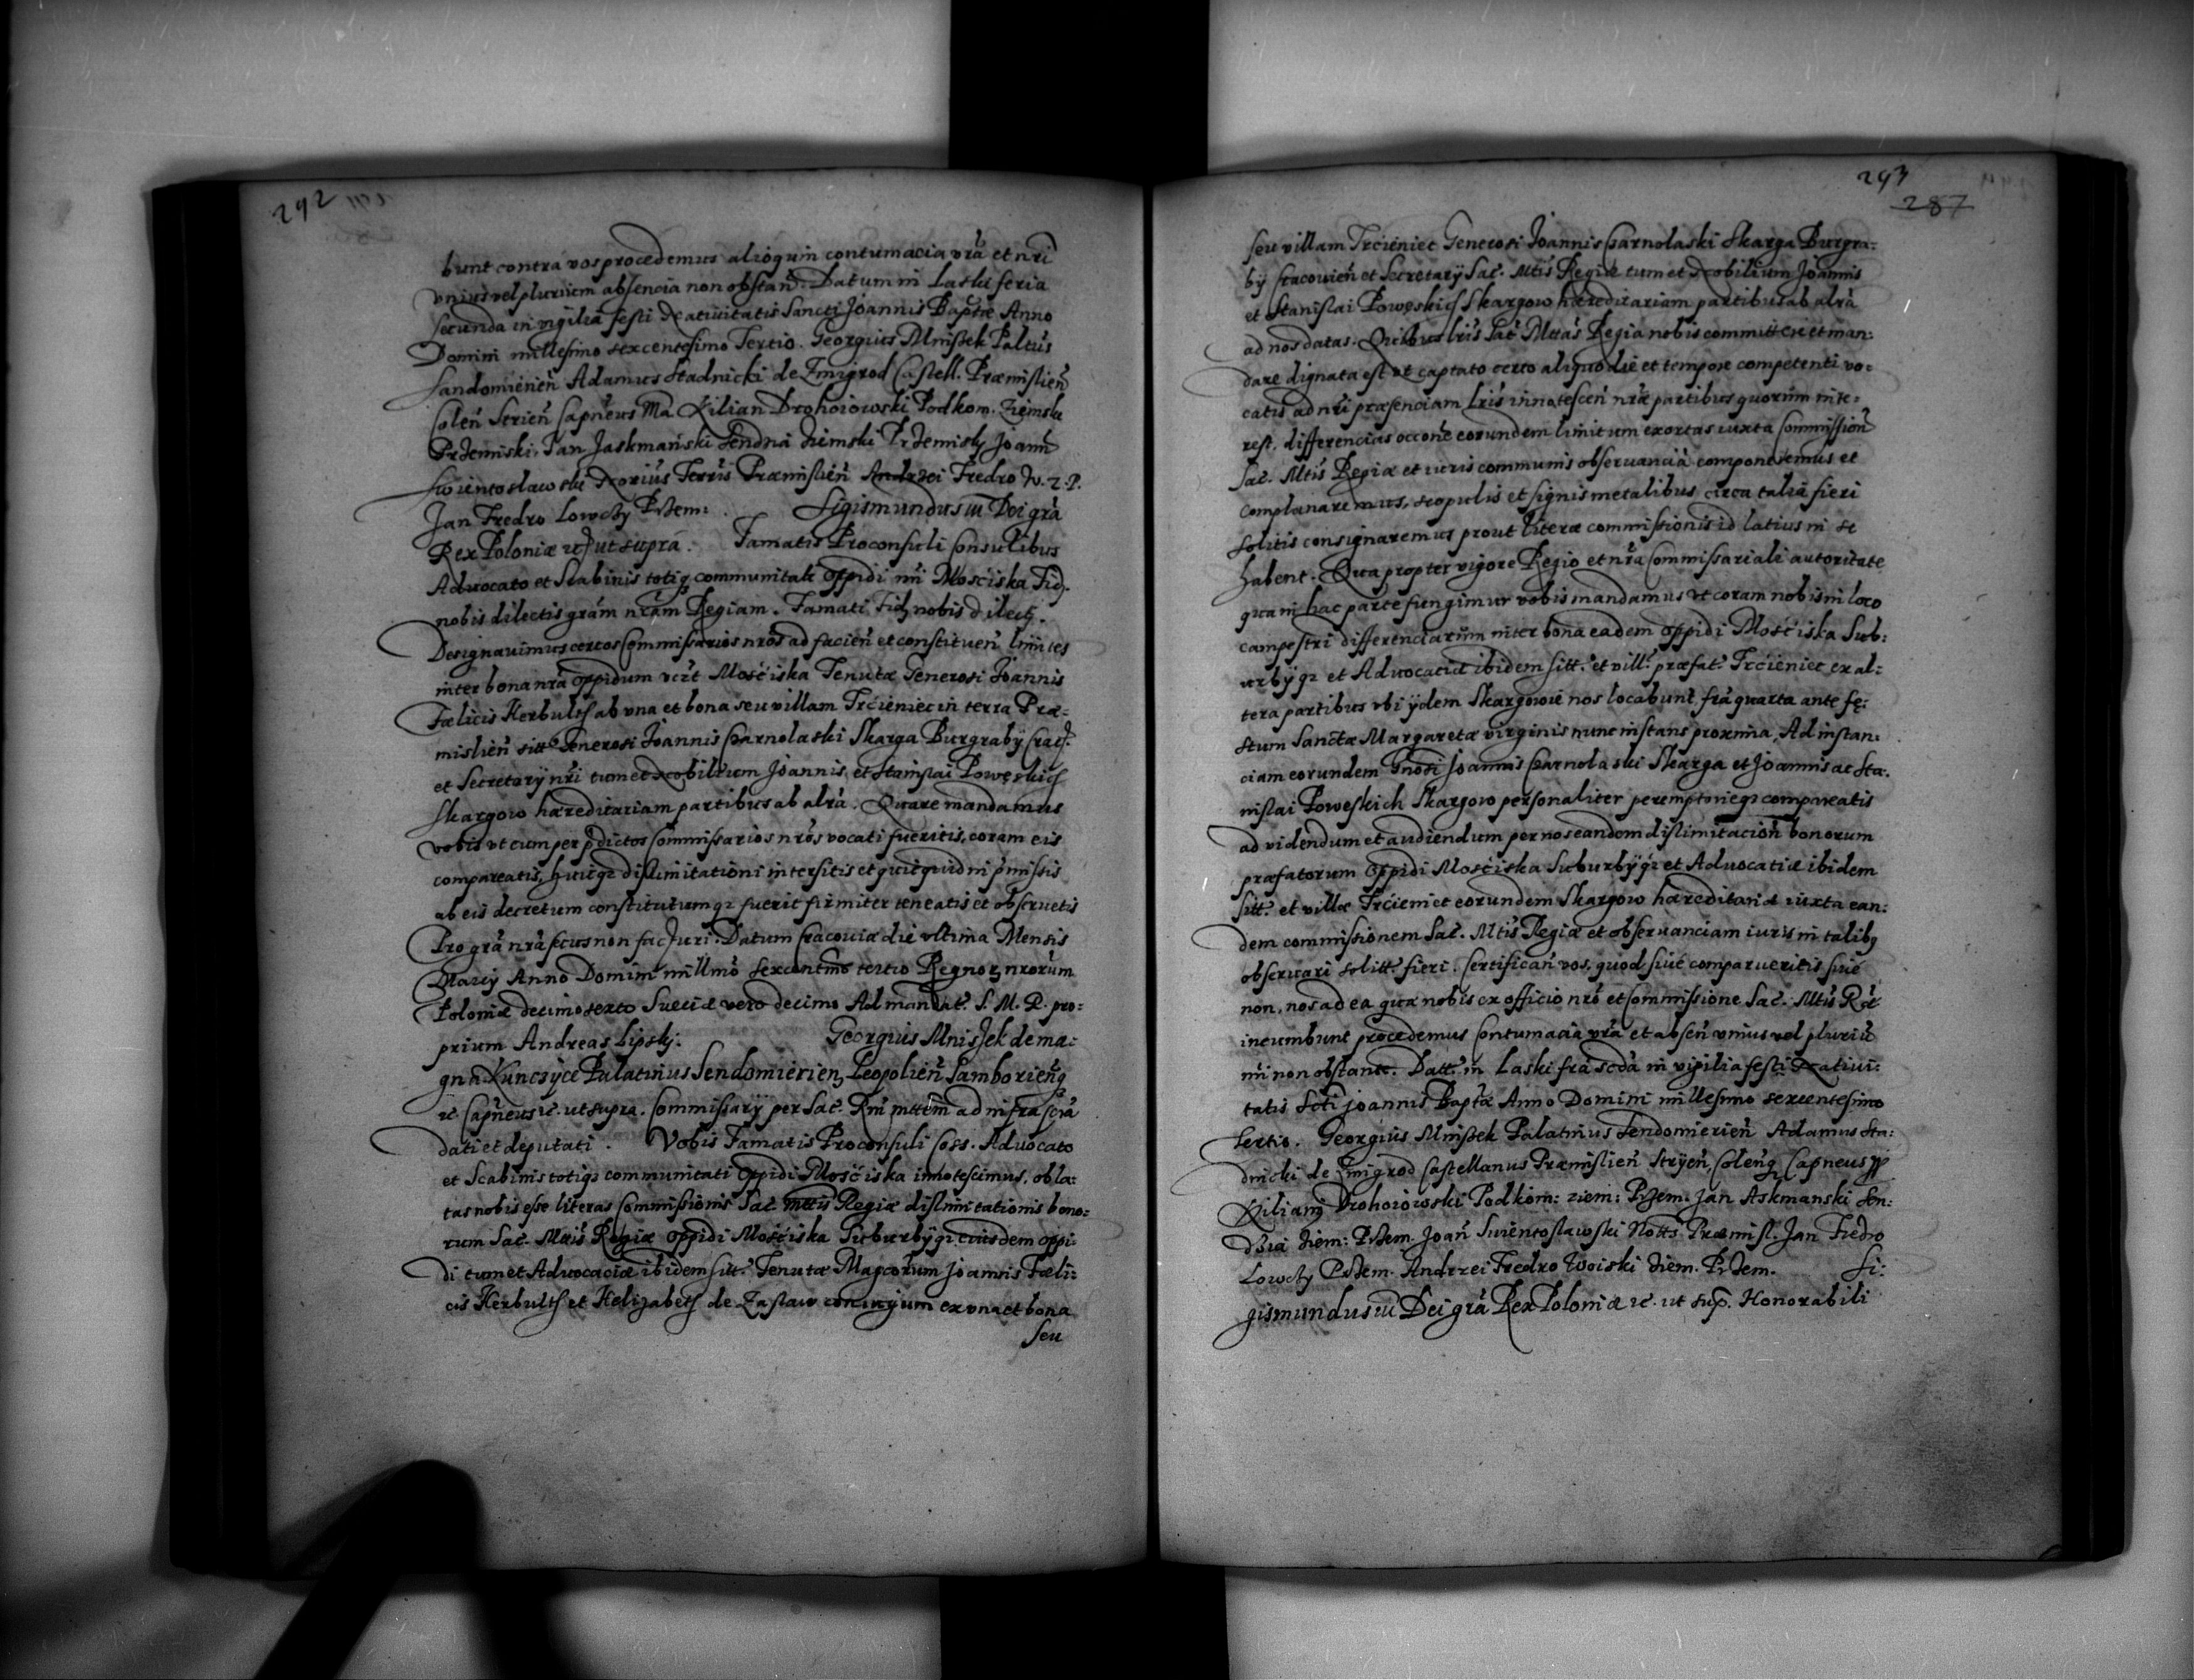 292
bunt contra vos procedemus alioquin contumacia vrã et nri
vnius vel plurium absencia non obstañ. Datum in Laski feria
secunda in vigilia festi Natiuitatis Sancti Joannis Baptæ Anno
Domini millesimo sexcentesimo Tertio. Georgius Mniszek Paltus
Sandomirieñ Adamus Stadnicki de Zmigrod Castell. Præmislieñ
Coleñ Strieñ Capneus Kilian Drohoiowski Podkom. Ziemski
Przemiski, Jan Jaskmański Sendzia Ziemski Przemisky Joann
Swientoslawski Norius Terris Præmislieñ Andrzei Fredro W. Z. P.
Jan Fredro Lowczy Przem: Sigismundus III Dei grã
Rex Poloniæ ut supra. Famatis Proconsuli Consulibus
Aduocato et Scabinis totiqz communitati oppidi nri Mosciska Fid.
nobis dilectis grãm nrãm Regiam. Famati Fid nobis dilecti.
Designauimus certos Commissarios nros ad facieñ et constitueñ limites
inter bona nrã oppidum vczt Mosćiska Tenutæ Generosi Joannis
Fælicis Herbulth ab vna et bona seu villam Trćieniec in terra Præ-
mislieñ sitt Generosi Joannis Czarnolaski Skarga Burgrabÿ Crac.
et Secretarÿ nri tum et Nobilium Joannis et Stanislai Poweskich
Skargow hæreditariam partibus ab alrã. Quare mandamus
vobis vt cum per pdictos Commissarios nros vocati fueritis, coram eis
compareatis, huicqz dislimitationi intersitis et quicquid in pmissis
ab eis decretum constitutumqz fuerit firmiter teneatis et obseruetis
Pro grã nrã secus non facturi. Datum Cracouiæ die vltima Mensis
Marcÿ Anno Domini millmo sexcentmo tertio Regnoz nrorum
Poloniæ decimo sexto Sueciæ vero decimo Ad mandat. S. M. R. pro:
prium Andreas Lipsky: Georgius Mniszek de ma:
gna Kunczyce Palatinus Sendomirieñ, Leopolieñ Samborieñqz
ec Capneus ec. ut supra. Commissarÿ per Sac. Rm mttm ad infrascrã
dati et deputati. Vobis Famatis Proconsuli Coss. Aduocato
et Scabinis totiqz communitati oppidi Mosćiska innotescimus, obla:
tas nobis esse literas Commissionis Sac. mttis Regiæ dislimitationis bono:
rum Sac. Mttis Regiæ oppidi Mosćiska Suburbÿqz eiusdem oppi:
di tum et Aduocaciæ ibidem sitt. Tenutæ Magcorum Joannis Fæli:
cis Herbulth et Helizabeth de Zaslaw coniugum ex vna et bona
seu
293
287
seu villam Trcieniec Generosi Joannis Czarnolaski Skarga Burgra:
bÿ Cracouieñ et Secretarÿ Sac. Mttis Regiæ tum et Nobilium Joannis
et Stanislai Poweskich Skargow hæreditariam partibus ab alrã
ad nos datas. Quibus lris Sac Mttas Regia nobis committere et man:
dare dignata est vt captato certo aliquo die et tempore competenti vo:
catis ad nri præsenciam lris innotesceñ nræ partibus quorum inte:
rest, differencias occone eorundem limitum exortas iuxta Commissioñ
Sac. Mttis Regiæ et iuris communis obseruanciã componeremus et
complanaremus, scopulis et signis metalibus circa talia fieri
solitis consignaremus prout literæ commissionis id latius in se
habent. Quapropter vigore Regio et nrã Commissariali autoritate
qua in hac parte fungimur vobis mandamus vt coram nobis in loco
campestri differenciarum inter bona eadem oppidi Mosćiska Sub:
urbÿqz et Aduocatiæ ibidem sitt. et vill præfat. Trćieniec ex al:
tera partibus vbi ÿdem Skargowie nos locabunt, friã quarta ante fe:
stum Sanctæ Margaretæ virginis nunc instans proxima, Ad instan:
ciam eorundem Gnosi Joannis Czarnolaski Skarga et Joannis ac Sta:
nislai Poweskich Skargow personaliter peremptorieqz compareatis
ad videndum et audiendum per nos eandem dislimitacioñ bonorum
præfatorum oppidi Mosćiska Suburbÿqz et Aduocatiæ ibidem
sitt. et villæ Trćieniec eorundem Skargow hæreditariæ iuxta ean:
dem commissionem Sac. Mttis Regiæ et obseruanciam iuris in talibqz
obseruari solitt. fieri. Certificañ vos, quod siue comparueritis siue
non, nos ad ea quæ nobis ex officio nro et Commissione Sac. Mttis Ræ
incumbunt procedemus Contumacia vrã et abseñ vnius vel pluriũ
nri non obstante. Datt. in Laski friã scdã in vigilia festi Natiui:
tatis Scti Joannis Baptæ Anno Domini millesimo sexcentesimo
tertio. Georgius Mniszek Palatinus Sendomirieñ Adamus Sta:
dnicki de Zmigrod Castellanus Præmislieñ Strÿeñ, Coleñqz Capneus
Kiliam Drohoiowski Podkom: ziem: Przem. Jan Askmanski Sen:
dzia ziem: Przem. Joañ Swientoslawski Notts Præmisl. Jan Fredro
Lowczy Przem. Andrzei Fredro Woiski ziem. Przem. Si:
gismundus III Dei grã Rex Poloniæ ec. ut sup. Honorabili